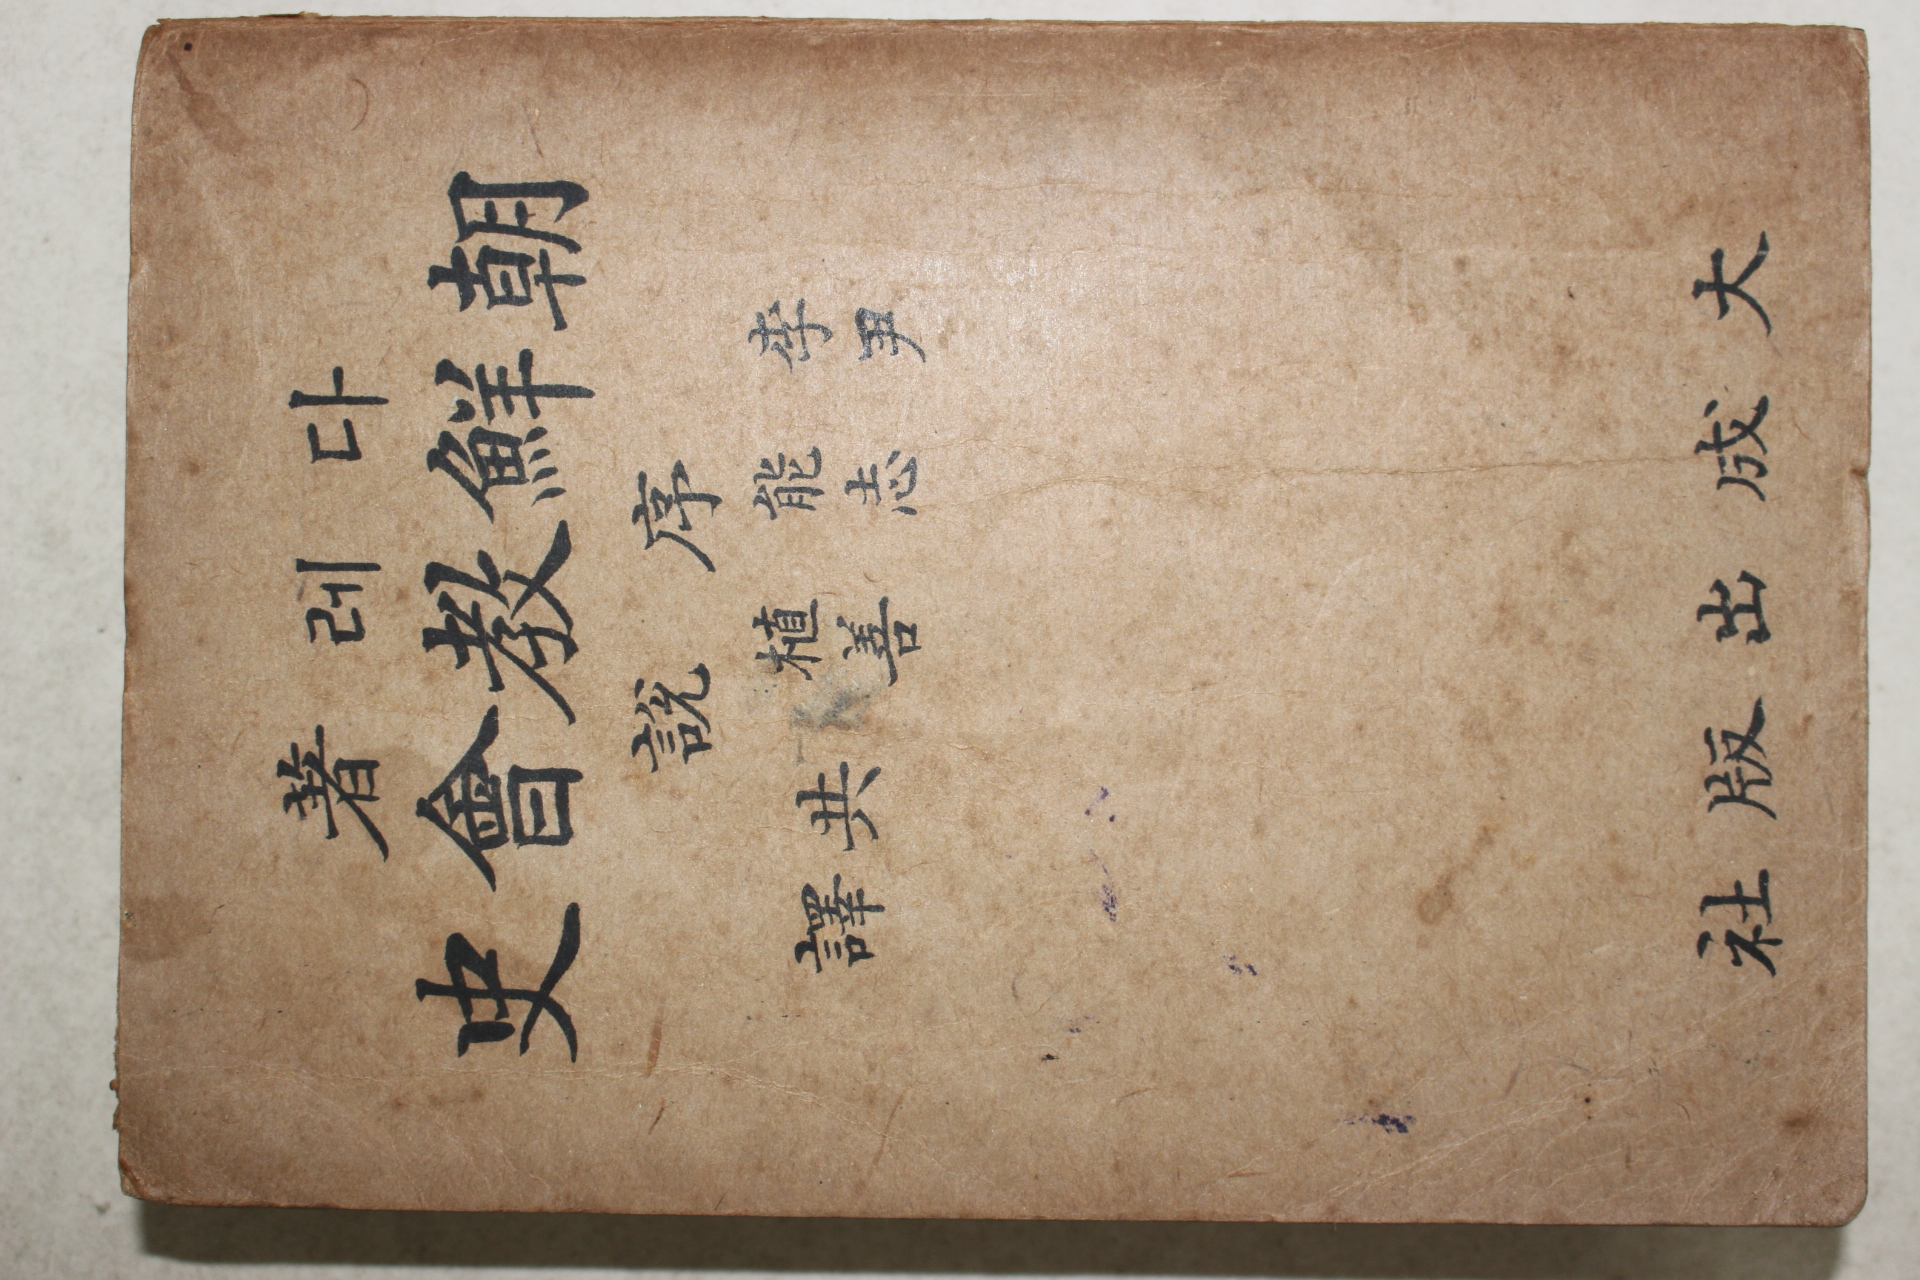 다레著
朝鮮教會史
序說
李能植
尹志善
共譯
大成出版社